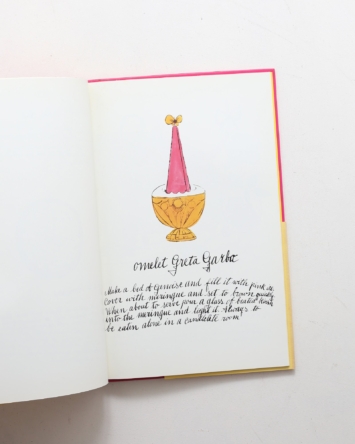 omelet Greta Garbo
Make a bed of Genoise and fill it with pink ice
cover with meringue and set to brown quickly
When about to serve pour a glass of heated
into the meringue and light it Always to
be eaten alone in a candlelit room